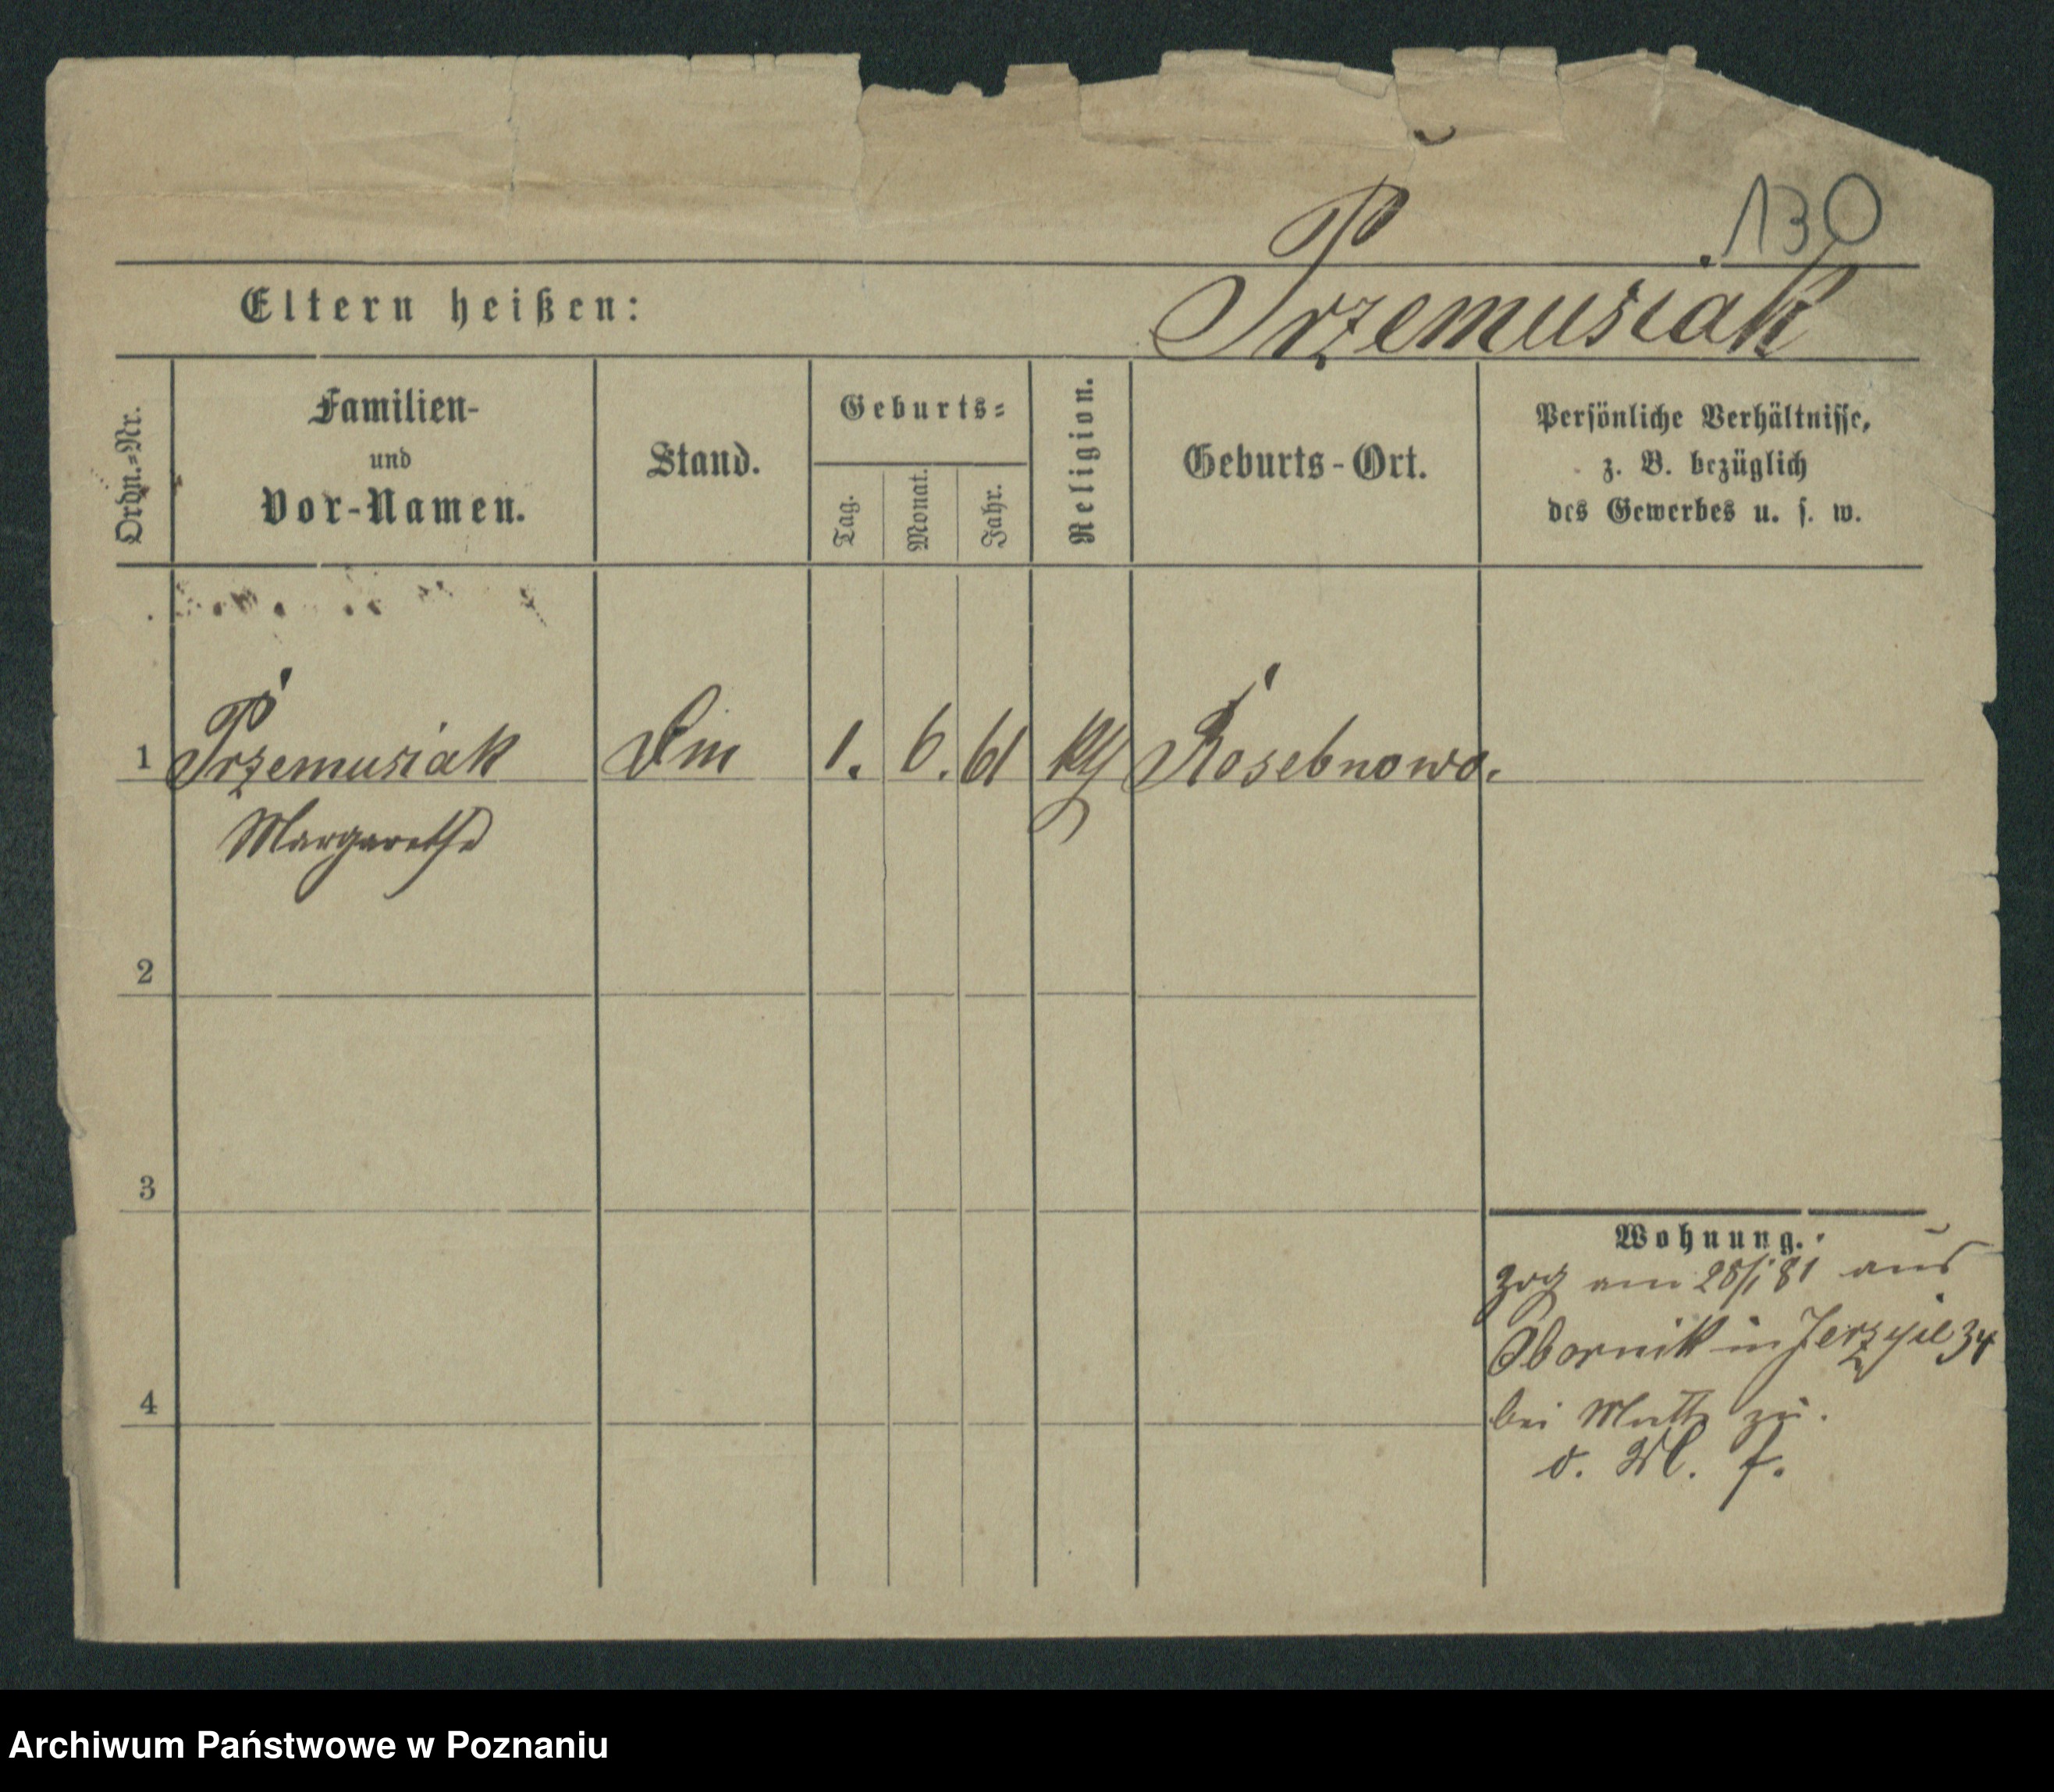 130
Przemusiak
Eltern heißen:
Ordn.=Nr.
Familien-
und
Vor-Namen.
Stand.
Geburts=
Tag.
Monat.
Jahr.
Religion.
Geburts-Ort.
Persönliche Verhältnisse,
z. B. bezüglich
des Gewerbes u. s. w.
1 Przemusiak 1. 6. 61 Rosebnowo.
Margarethe
2
3
4
Wohnung.
zog am 28/1 81 aus
Obornik in 34
bei zu.